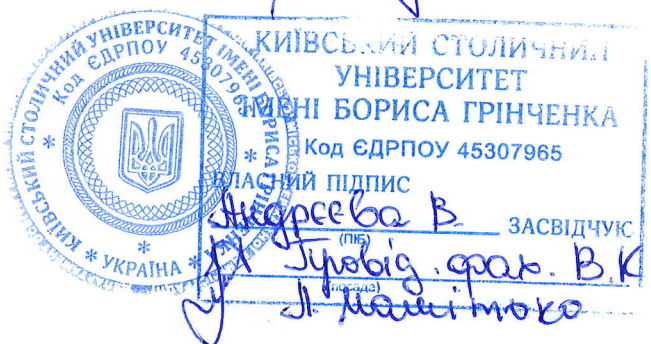 КИЇВСЬКИЙ СТОЛИЧНИЙ УНІВЕРСИТЕТ ІМЕНІ БОРИСА ГРІНЧЕНКА
Код ЄДРПОУ 45307965
* УКРАЇНА *
КИЇВСЬКИЙ СТОЛИЧНИЙ
УНІВЕРСИТЕТ
ІМЕНІ БОРИСА ГРІНЧЕНКА
Код ЄДРПОУ 45307965
ВЛАСНИЙ ПІДПИС
Андрєєва В. ЗАСВІДЧУЮ
(ПІБ)
Провід. фах. В.К
(посада)
Л.